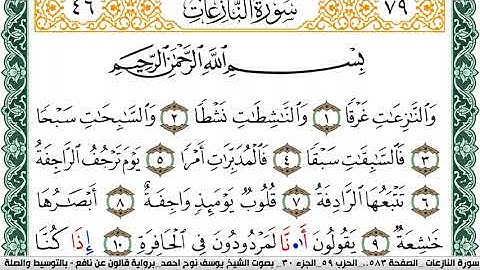 ٤٦ سُورَةُ النَّازِعَاتِ ٧٩
بِسْمِ اللَّهِ الرَّحْمَٰنِ الرَّحِيمِ
وَالنَّازِعَاتِ غَرْقًا ١ وَالنَّاشِطَاتِ نَشْطًا ٢ وَالسَّابِحَاتِ سَبْحًا
٣ فَالسَّابِقَاتِ سَبْقًا ٤ فَالْمُدَبِّرَاتِ أَمْرًا ٥ يَوْمَ تَرْجُفُ الرَّاجِفَةُ
٦ تَتْبَعُهَا الرَّادِفَةُ ٧ قُلُوبٌ يَوْمَئِذٍ وَاجِفَةٌ ٨ أَبْصَارُهَا
خَاشِعَةٌ ٩ يَقُولُونَ أَ•نَّا لَمَرْدُودُونَ فِي الْحَافِرَةِ ١٠ إِذَا كُنَّا
سورة النازعات _الصفحة ٥٨٣_ الحزب ٥٩_الجزء ٣٠_ بصوت الشيخ يوسف نوح احمد_برواية قالون عن نافع - بالتوسيط والصلة